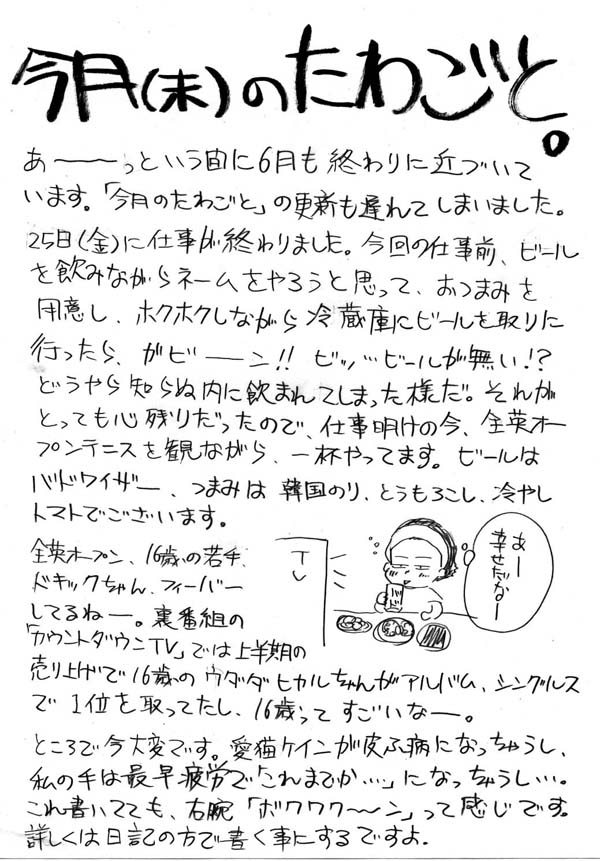 今月(末)のたわごと。
あ〜〜〜っという間に6月も終わりに近づいて
います。「今月のたわごと」の更新も遅れてしまいました。
25日(金)に仕事が終わりました。今回の仕事前、ビール
を飲みながらネームをやろうと思って、おつまみを
用意し、ホクホクしながら冷蔵庫にビールを取りに
行ったら、ガビーーン!! ビッ…ビールが無い!?
どうやら知らぬ内に飲まれてしまった様だ。それが
とっても心残りだったので、仕事明けの今、全英オー
プンテニスを観ながら、一杯やってます。ビールは
バドワイザー、つまみは韓国のり、とうもろこし、冷やし
トマトでございます。
全英オープン、16歳の若手、
ドキックちゃん、フィーバー
してるねー。裏番組の
「カウントダウンTV」では上半期の
売り上げで16歳のウダダヒカルちゃんがアルバム、シングルス
で1位を取ってたし、16歳ってすごいなー。
TV
あー
幸せだなー
ところで今大変です。愛猫ケインが皮ふ病になっちゃうし、
私の手は最早疲労で「これまでか…」になっちゃうし…。
これ書いてても、右腕「ボワワワ〜〜ン」って感じです。
詳しくは日記の方で書く事にするですよ。